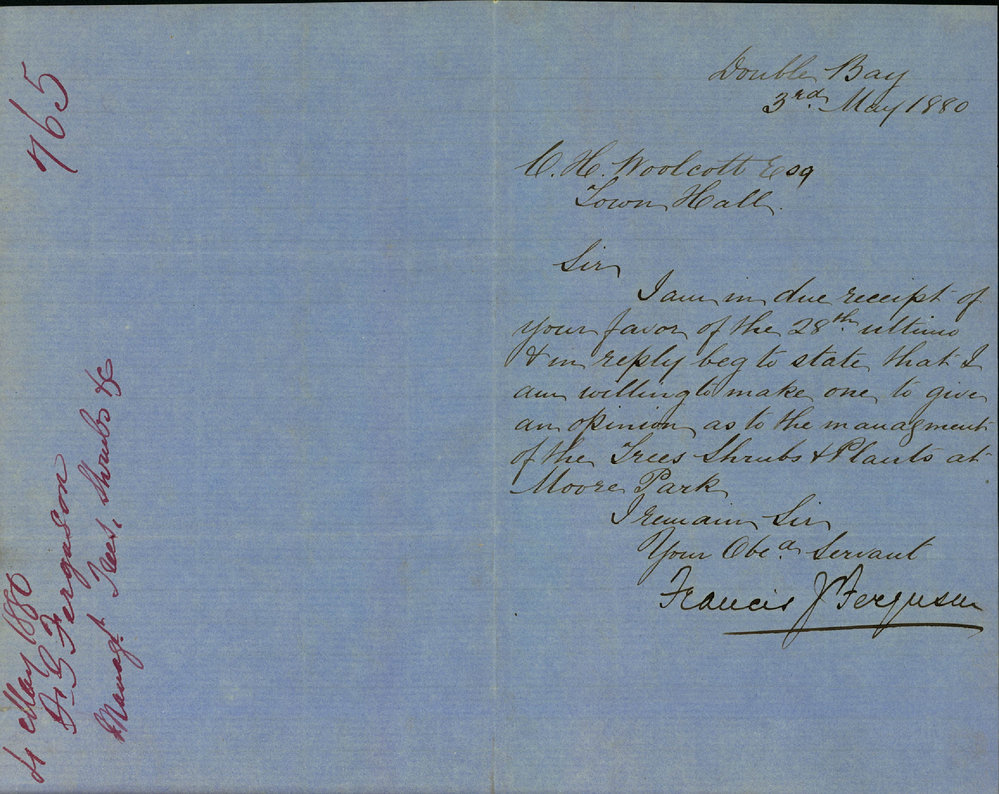 Double Bay
3rd May 1880
C. H. Woolcott Esq
Town Hall.
Sir
I am in due receipt of
your favor of the 28th. ultimo
& in reply beg to state that I
am willing to make one to give
an opinion as to the managment
of the Trees Shrubs & Plants at
Moore Park
I remain Sir
Your Obed. Servant
Francis J Ferguson
765
4 May 1880
Ferguson
Managt. Trees, Shrubs &c